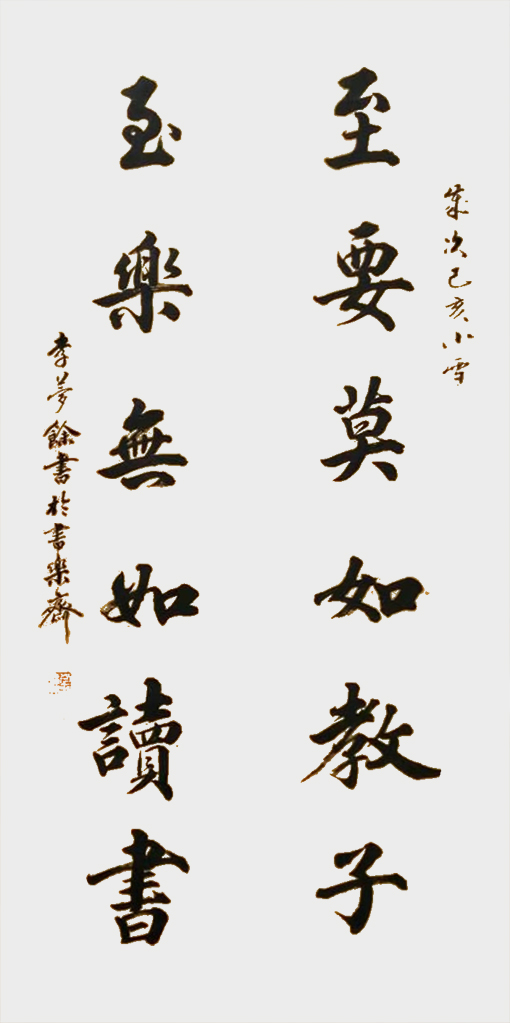 歲次己亥小雪
至要莫如教子
至樂無如讀書
李夢餘書於書樂齋